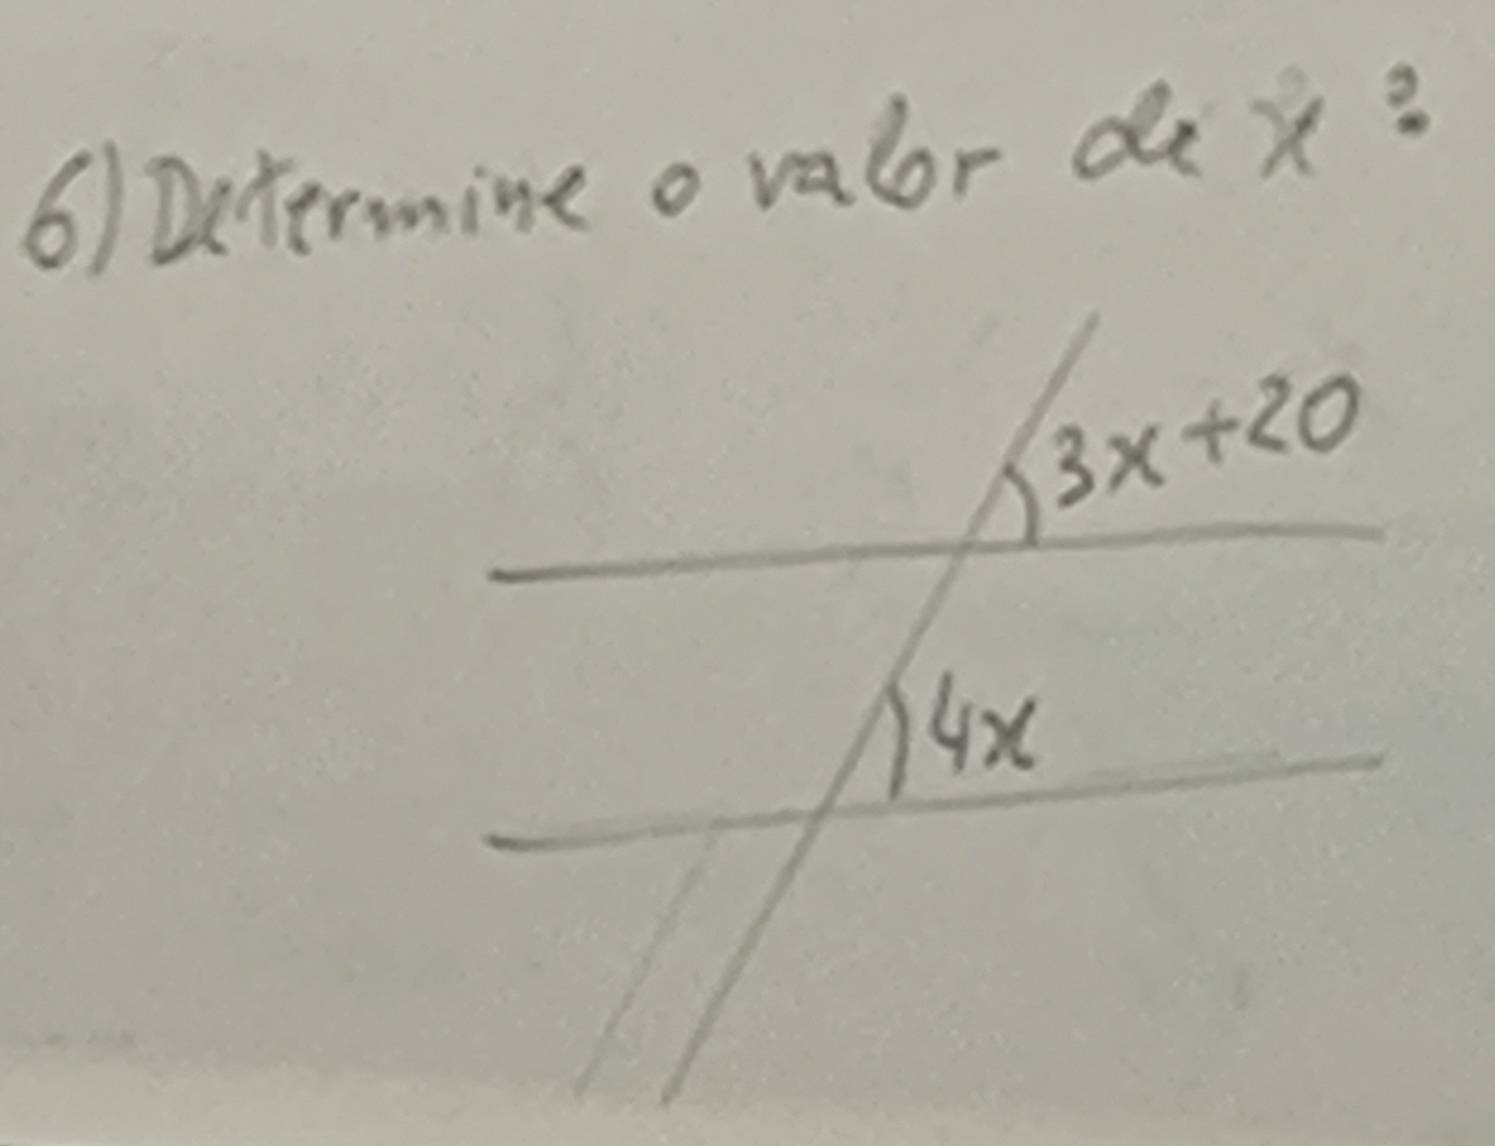 6) Determine o valor de x?
3x+20
4x